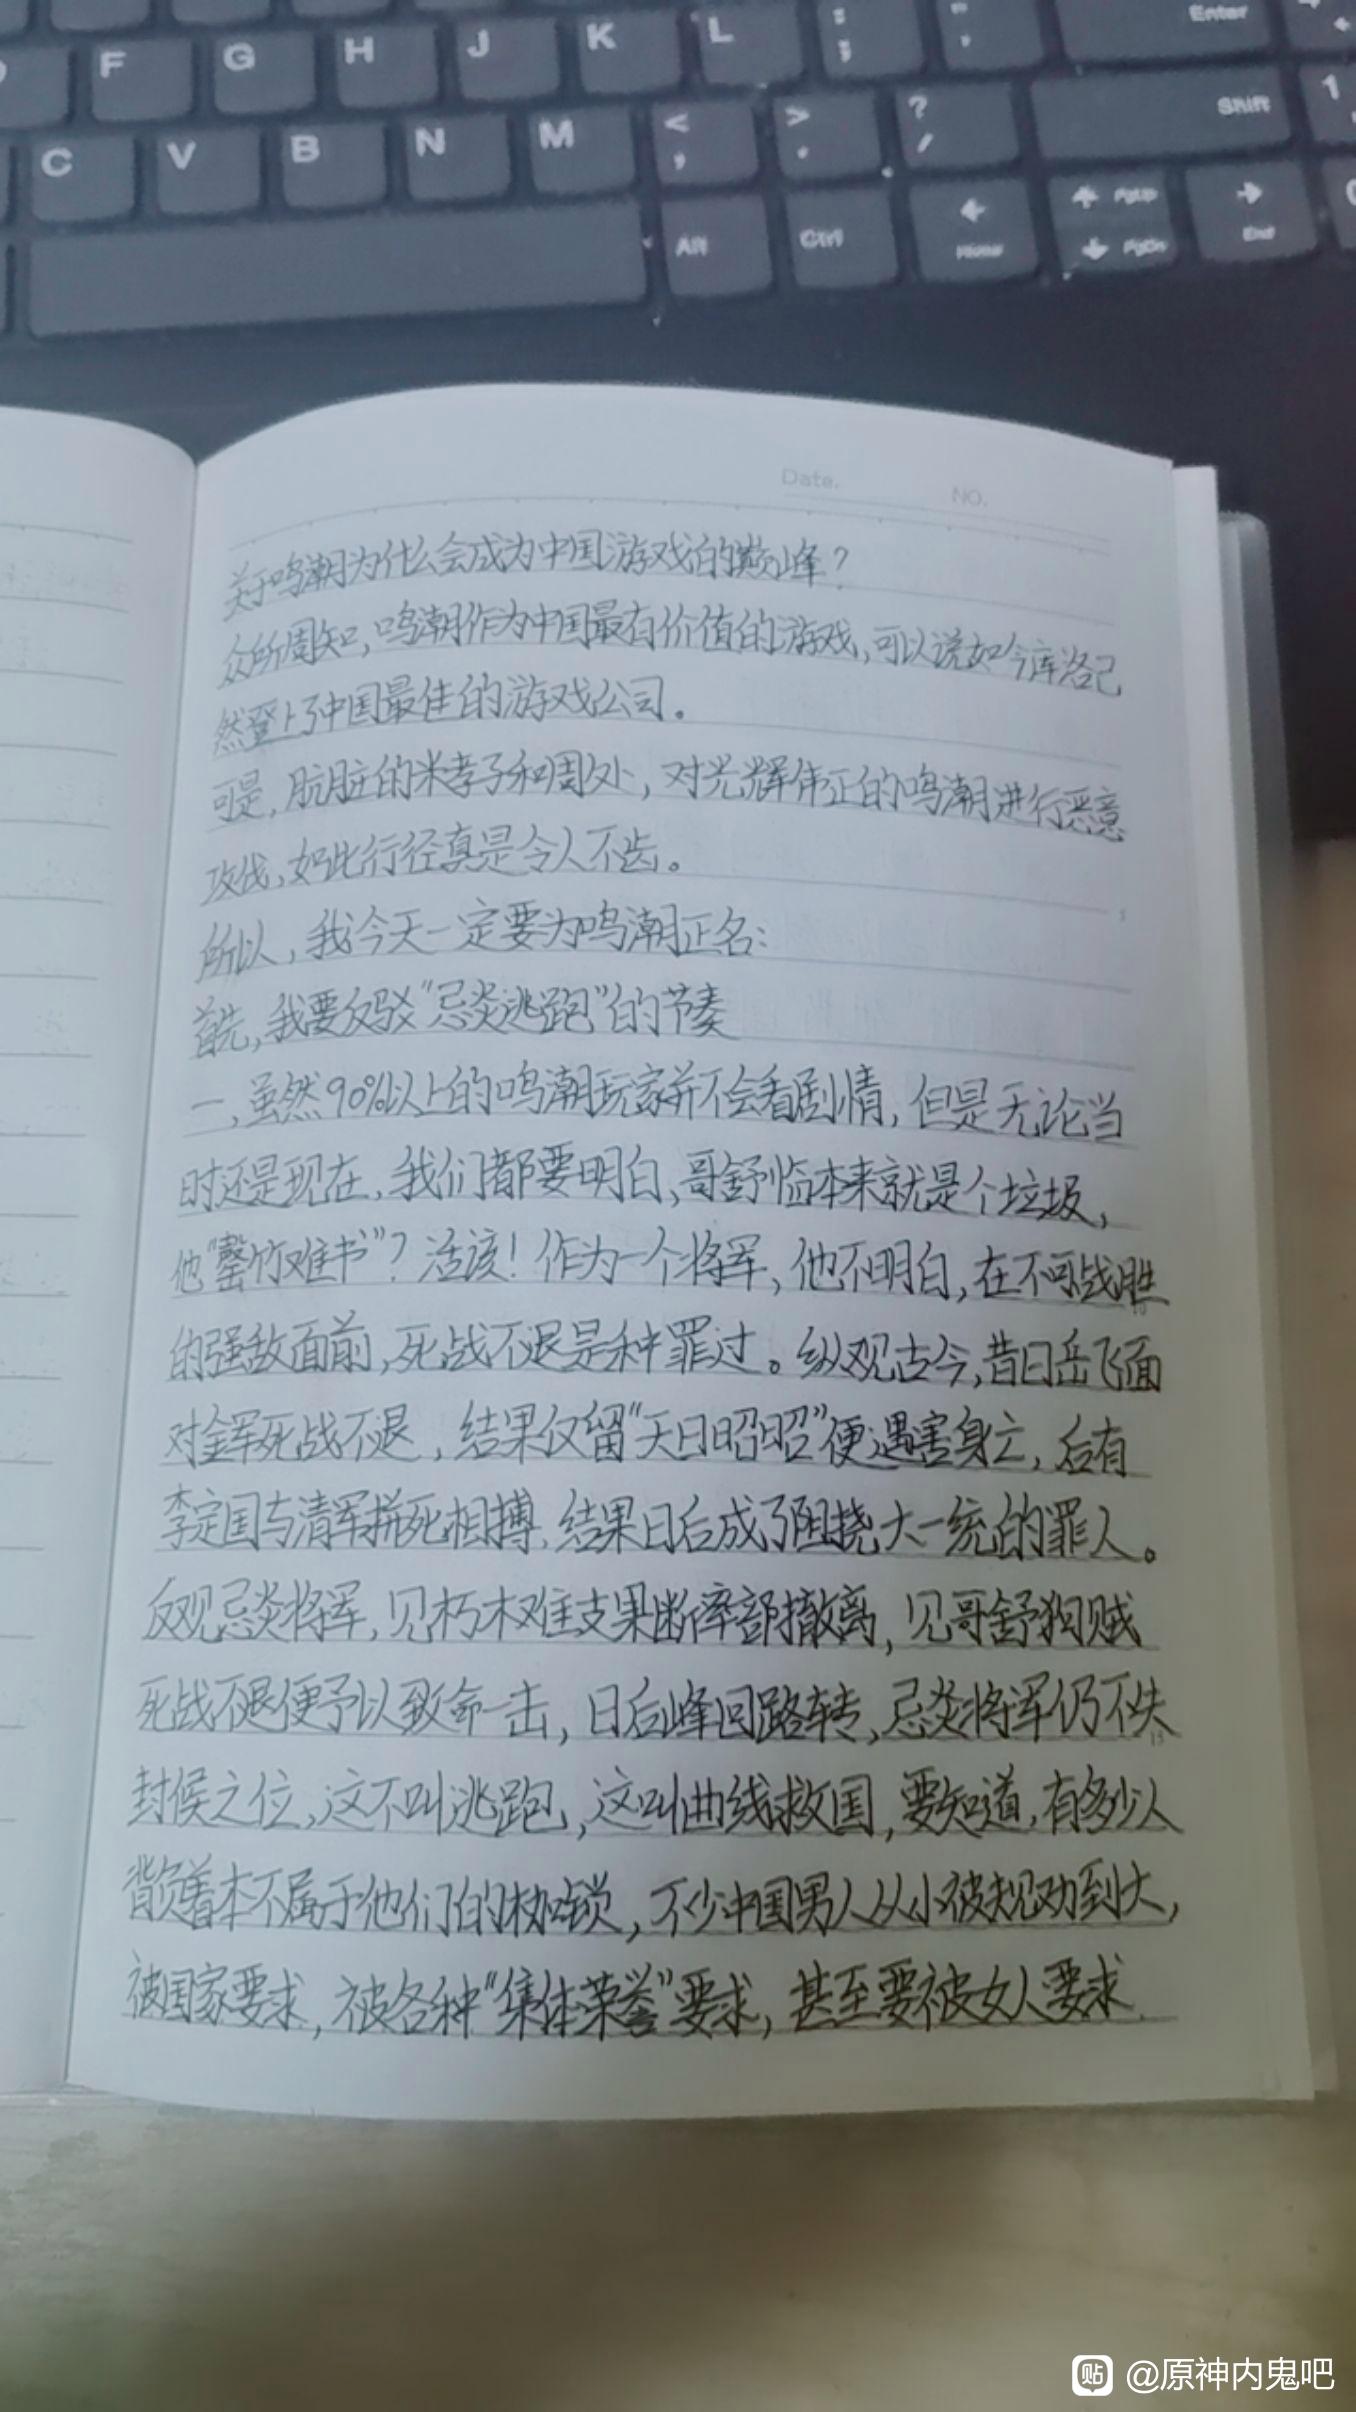 F G H J K L : ; " ' Enter
C V B N M < , > . ? / Shift 1
Alt Ctrl Home PgUp PgDn End
Date. NO.
关于鸣潮为什么会成为中国游戏的巅峰？
众所周知，鸣潮作为中国最有价值的游戏，可以说如今库洛已
然登上了中国最佳的游戏公司。
可是，肮脏的米孝子和周处，对光辉伟正的鸣潮进行恶意
攻伐，如此行径真是令人不齿。
所以，我今天一定要为鸣潮正名：
首先，我要反驳“忌炎逃跑”的节奏
一，虽然90%以上的鸣潮玩家并不会看剧情，但是无论当
时还是现在，我们都要明白，哥舒临本来就是个垃圾，
他“罄竹难书”？活该！作为一个将军，他不明白，在不可战胜
的强敌面前，死战不退是种罪过。纵观古今，昔日岳飞面
对金军死战不退，结果仅留“天日昭昭”便遇害身亡，后有
李定国与清军拼死相搏，结果日后成了阻挠大一统的罪人。
反观忌炎将军，见朽木难支果断率部撤离，见哥舒狗贼
死战不退便予以致命一击，日后峰回路转，忌炎将军仍不失
封候之位，这不叫逃跑，这叫曲线救国，要知道，有多少人
背负着本不属于他们的枷锁，不少中国男人从小被规劝到大，
被国家要求，被各种“集体荣誉”要求，甚至要被女人要求
贴 @原神内鬼吧